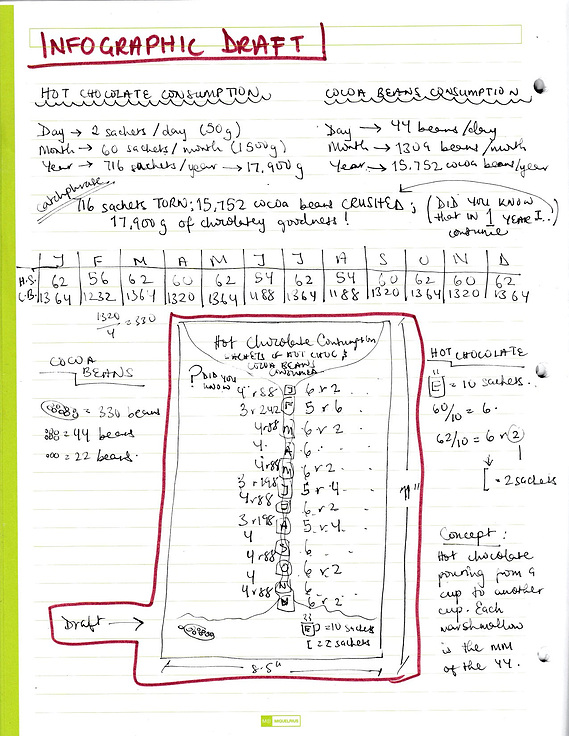 INFOGRAPHIC DRAFT
HOT CHOCOLATE CONSUMPTION
Day → 2 sachets/day (50g)
Month → 60 sachets/month (1500g)
Year → 716 sachets/year → 17,900g
COCOA BEANS CONSUMPTION
Day → 44 beans/day
Month → 1309 beans/month
Year → 15,752 cocoa beans/year
catchphrase
716 sachets TORN; 15,752 cocoa beans CRUSHED;
17,900g of chocolatey goodness!
(DID YOU KNOW
that in 1 YEAR I..)
consume
J F M A M J J A S O N D
H.S. 62 56 62 60 62 54 62 54 60 62 60 62
C.B. 1364 1232 1364 1320 1364 1188 1364 1188 1320 1364 1320 1364
1320/4 = 330
COCOA
BEANS
= 330 beans
= 44 beans
= 22 beans
Hot Chocolate Consumption
SACHETS OF HOT CHOC &
COCOA BEANS
CONSUMED
? DID YOU
KNOW
4 r 88 J 6 r 2
3 r 242 F 5 r 6
4 r 88 M 6 r 2
4 A 6
4 r 88 M 6 r 2
3 r 198 J 5 r 4
4 r 88 J 6 r 2
3 r 198 A 5 r 4
4 S 6
4 r 88 O 6 r 2
4 N 6
4 r 88 D 6 r 2
= 10 sachets
[ = 2 sachets
11"
8.5"
Draft →
HOT CHOCOLATE
= 10 sachets.
60/10 = 6.
62/10 = 6 r 2
[ = 2 sachets
Concept:
Hot chocolate
pouring from a
cup to another
cup. Each
marshmallow
is the MM
of the YY.